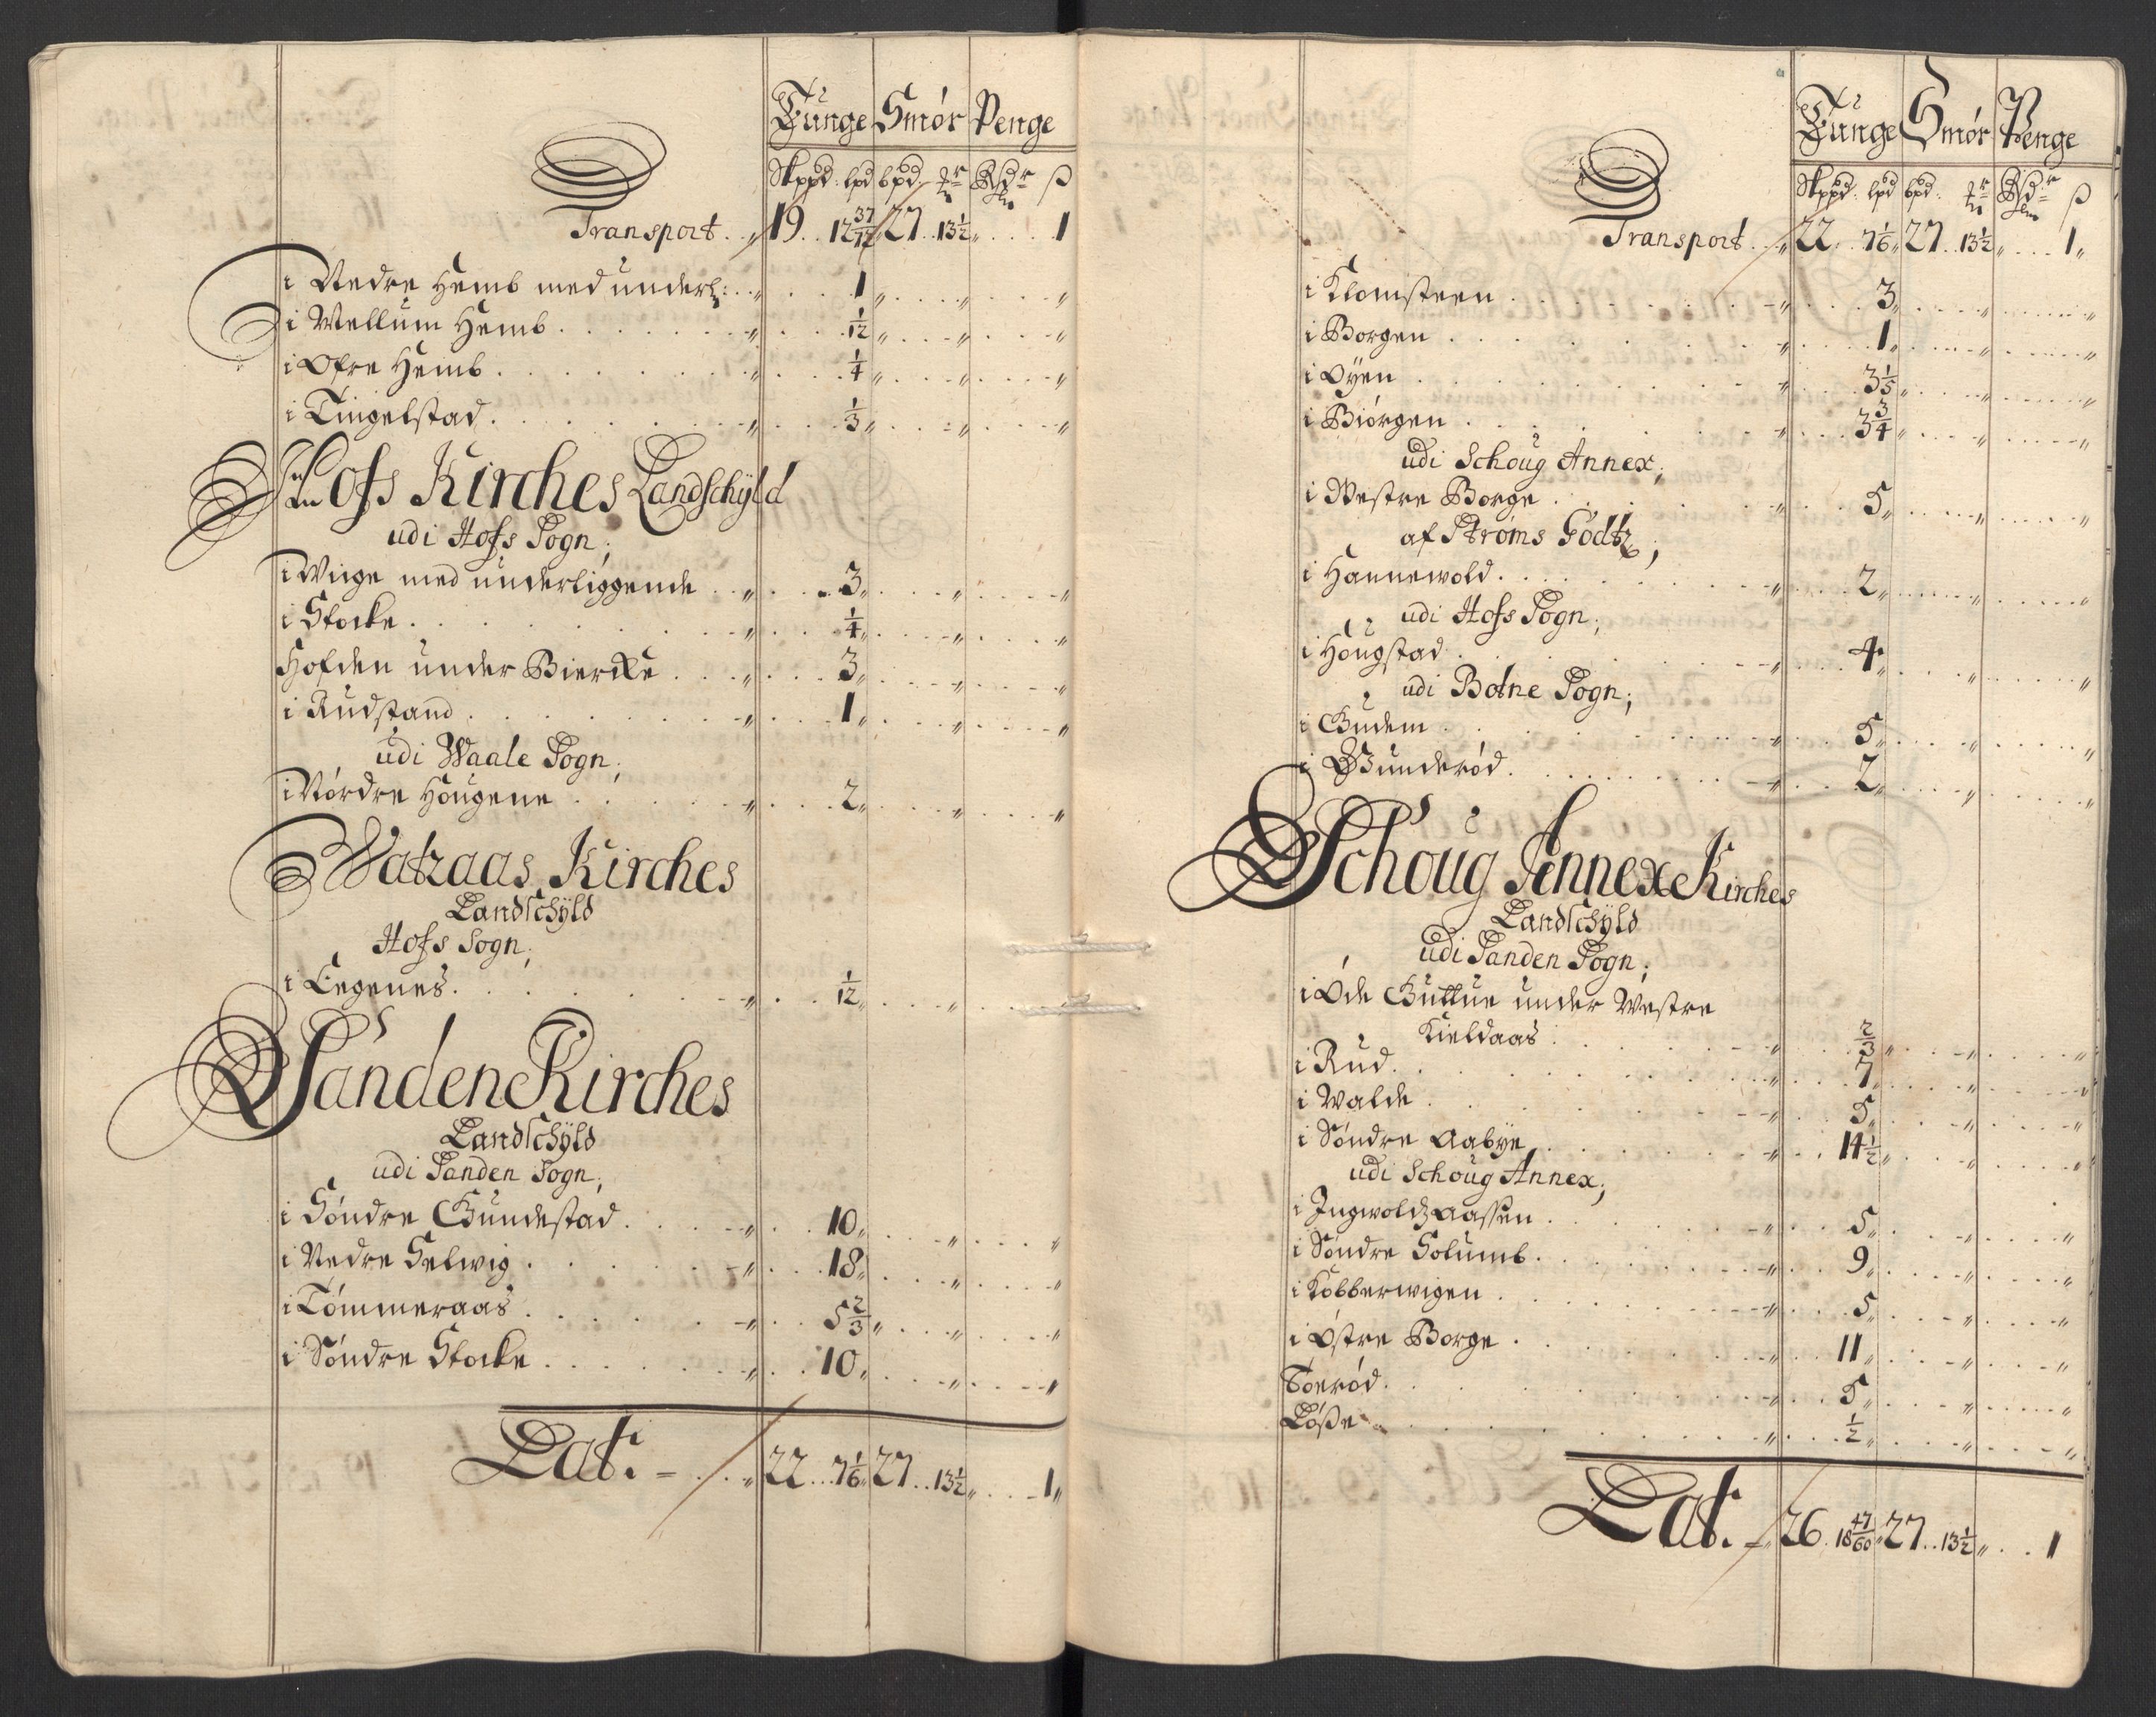 Tunge Smør Penge
Skppd: lpd bpd
Transport 19 12 37/72 27 13½ 1
i Nedre Hemb med underl: 1
i Mellum Hemb 1/12
i Ofre Hemb ¼
i Tingelstad ⅓
Hofs Kirches Landschÿld
udi Hofs Sogn;
i Wiige med underliggende 3
i Stocke ¼
Hofden under Biercke 3
i Rudstand 1
udi Waale Sogn;
i Nórdre Hougene 2
Watzaas Kirches
Landschÿld
Hofs Sogn;
i Eegenes 1/12
Sanden Kirches
Landschÿld
udi Sanden Sogn;
i Sóndre Gundestad 10
i Nedre Selwig 18
i Tómmeraas 5⅔
i Sóndre Stocke 10
Lat: 22 7⅙ 27 13½ 1
Tunge Smór Penge
Skppd: lpd bpd:
Transport 22 7⅙ 27 13½ 1
i Klomsteen 3
i Borgen 1
i Oÿen 3⅕
i Biórgen 3¾
udi Schoug Annex;
i Westre Borge 5
af Stróms Godtz;
i Hannewold 2
udi Hofs Sogn;
i Hougstad 4
udi Botne Sogn;
i Gudem 5
i Gunderód 2
Schoug Annexe Kirches
Landschÿld
udi Sanden Sogn;
i Óde Guttue under Westre
Kieldaas ⅔
i Rud 7
i Walde 5
i Sóndre Aabye 14½
udi Schoug Annex;
i Ingwoldz Aassen 5
i Sóndre Solumb 9
i Kobberwigen 5
i Óstre Borge 11
Toeród 5
Lóße ½
Lat: 26 18 47/60 27 13½ 1